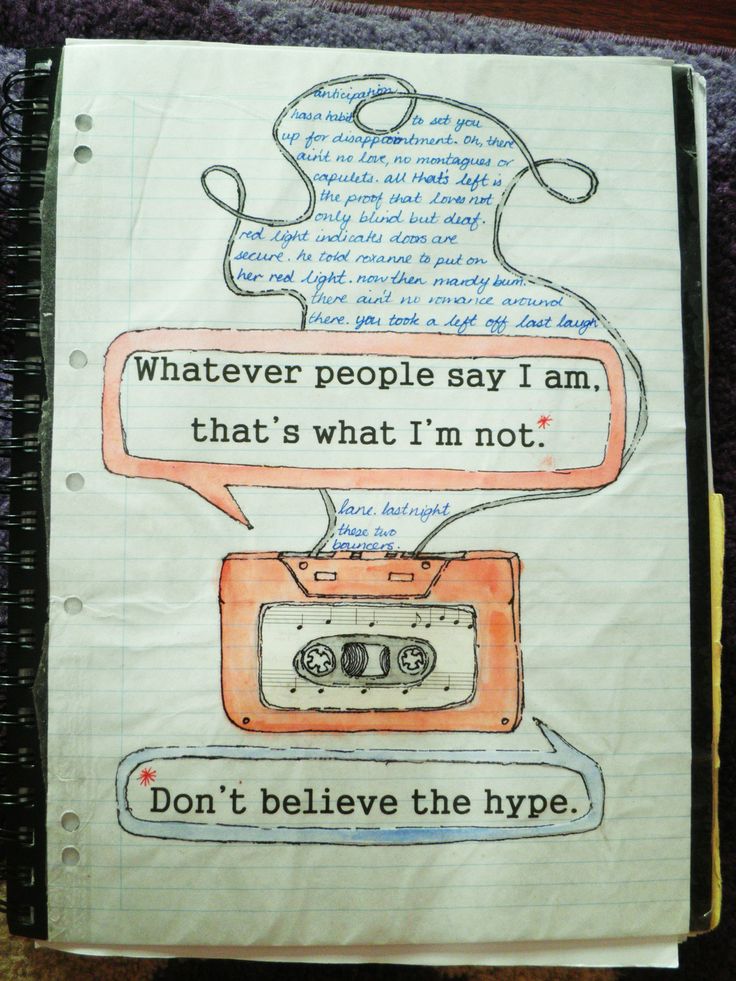 anticipation
has a habit to set you
up for disappointment. Oh, there
ain't no love, no montagues or
capulets. all that's left is
the proof that loves not
only blind but deaf.
red light indicates doors are
secure. he told roxanne to put on
her red light. now then mardy bum.
there ain't no romance around
there. you took a left off last laugh
Whatever people say I am,
that's what I'm not.*
lane. last night
these two
bouncers.
*Don't believe the hype.